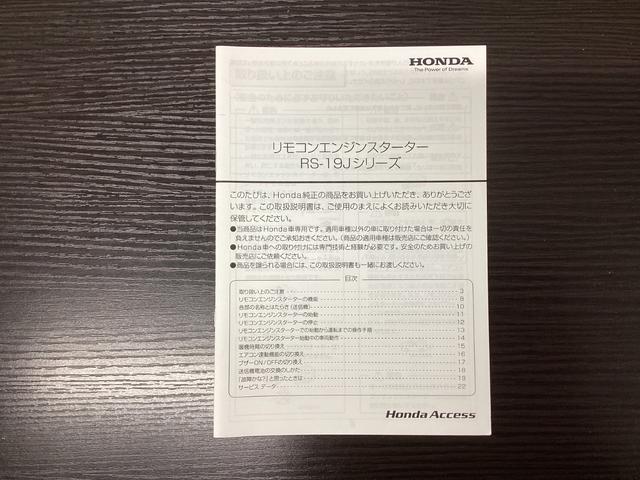 HONDA
The Power of Dreams
リモコンエンジンスターター
RS-19Jシリーズ
このたびは、Honda純正の商品をお買い上げいただき、ありがとうござ
います。この取扱説明書は、ご使用のまえによくお読みいただき大切に
保管してください。
●当商品はHonda車専用です。適用車種以外の車に取り付けた場合は一切の責任を
負えませんのでご承知おきください。(商品の適用車種は販売店にご確認ください。)
●Honda車への取り付けには専門技術と経験が必要です。安全のためお買い上げの
販売店にご依頼ください。
●商品を譲られる場合には、この取扱説明書も一緒にお渡しください。
目次
取り扱い上のご注意 3
リモコンエンジンスターターの機能 8
各部の名称とはたらき(送信機) 10
リモコンエンジンスターターの始動 11
リモコンエンジンスターターの停止 12
リモコンエンジンスターターでの始動から運転までの操作手順 13
リモコンエンジンスターター始動中の車両動作 14
暖機時間の切り換え 15
エアコン連動機能の切り換え 16
ブザーON/OFFの切り換え 17
送信機電池の交換のしかた 18
「故障かな?」と思ったときは 19
サービスデータ 22
Honda Access